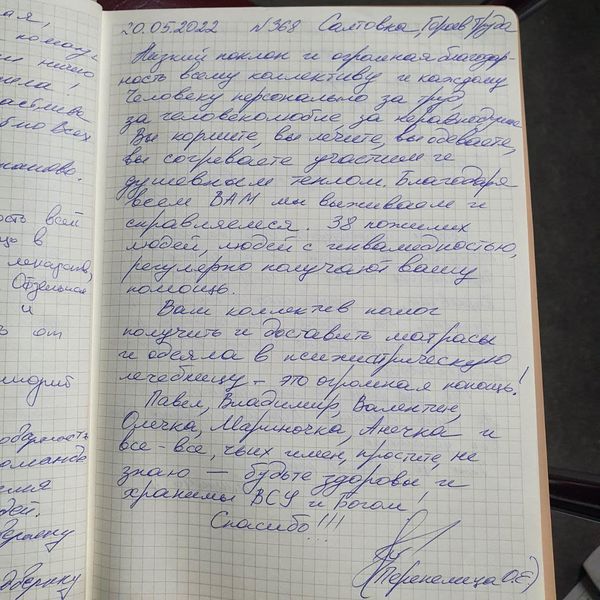 ая,
команду
ным
20.05.2022 №368 Салтовка, Героев Труда
Низкий поклон и огромная благодар-
ность всему коллективу и каждому
человеку персонально за труд
за человеколюбие за неравнодушие
Вы кормите, вы лечите, вы одеваете,
вы согреваете участием и
душевным теплом. Благодаря
всем ВАМ мы выживаем и
справляемся. 38 пожилых
людей, людей с инвалидностью,
регулярно получают вашу
помощь.
Ваш коллектив помог
получить и доставить матрасы
и одеяла в психиатрическую
лечебницу – это огромная помощь!
Павел, Владимир, Валентин,
Олечка, Мариночка, Анечка и
все-все, чьих имен, простите, не
знаю – будьте здоровы и
хранимы ВСУ и Богом!
Спасибо!!!
Перепелица О.Е)
ность всей
в
Отдельное
и
от
дей.